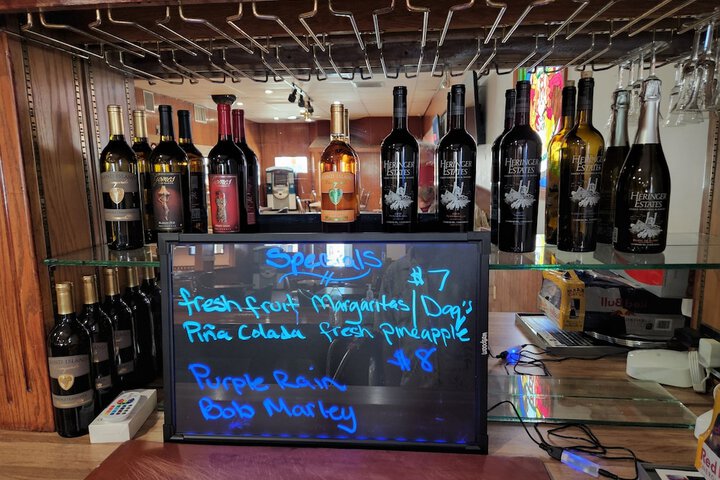 HERINGER
ESTATES
HERINGER
ESTATES
HERINGER
ESTATES
HERINGER
ESTATES
HERINGER
ESTATES
Specials
$7
fresh fruit Margaritas/Daq's
Piña Colada fresh pineapple
$8
Purple Rain
Bob Marley
Red Bull